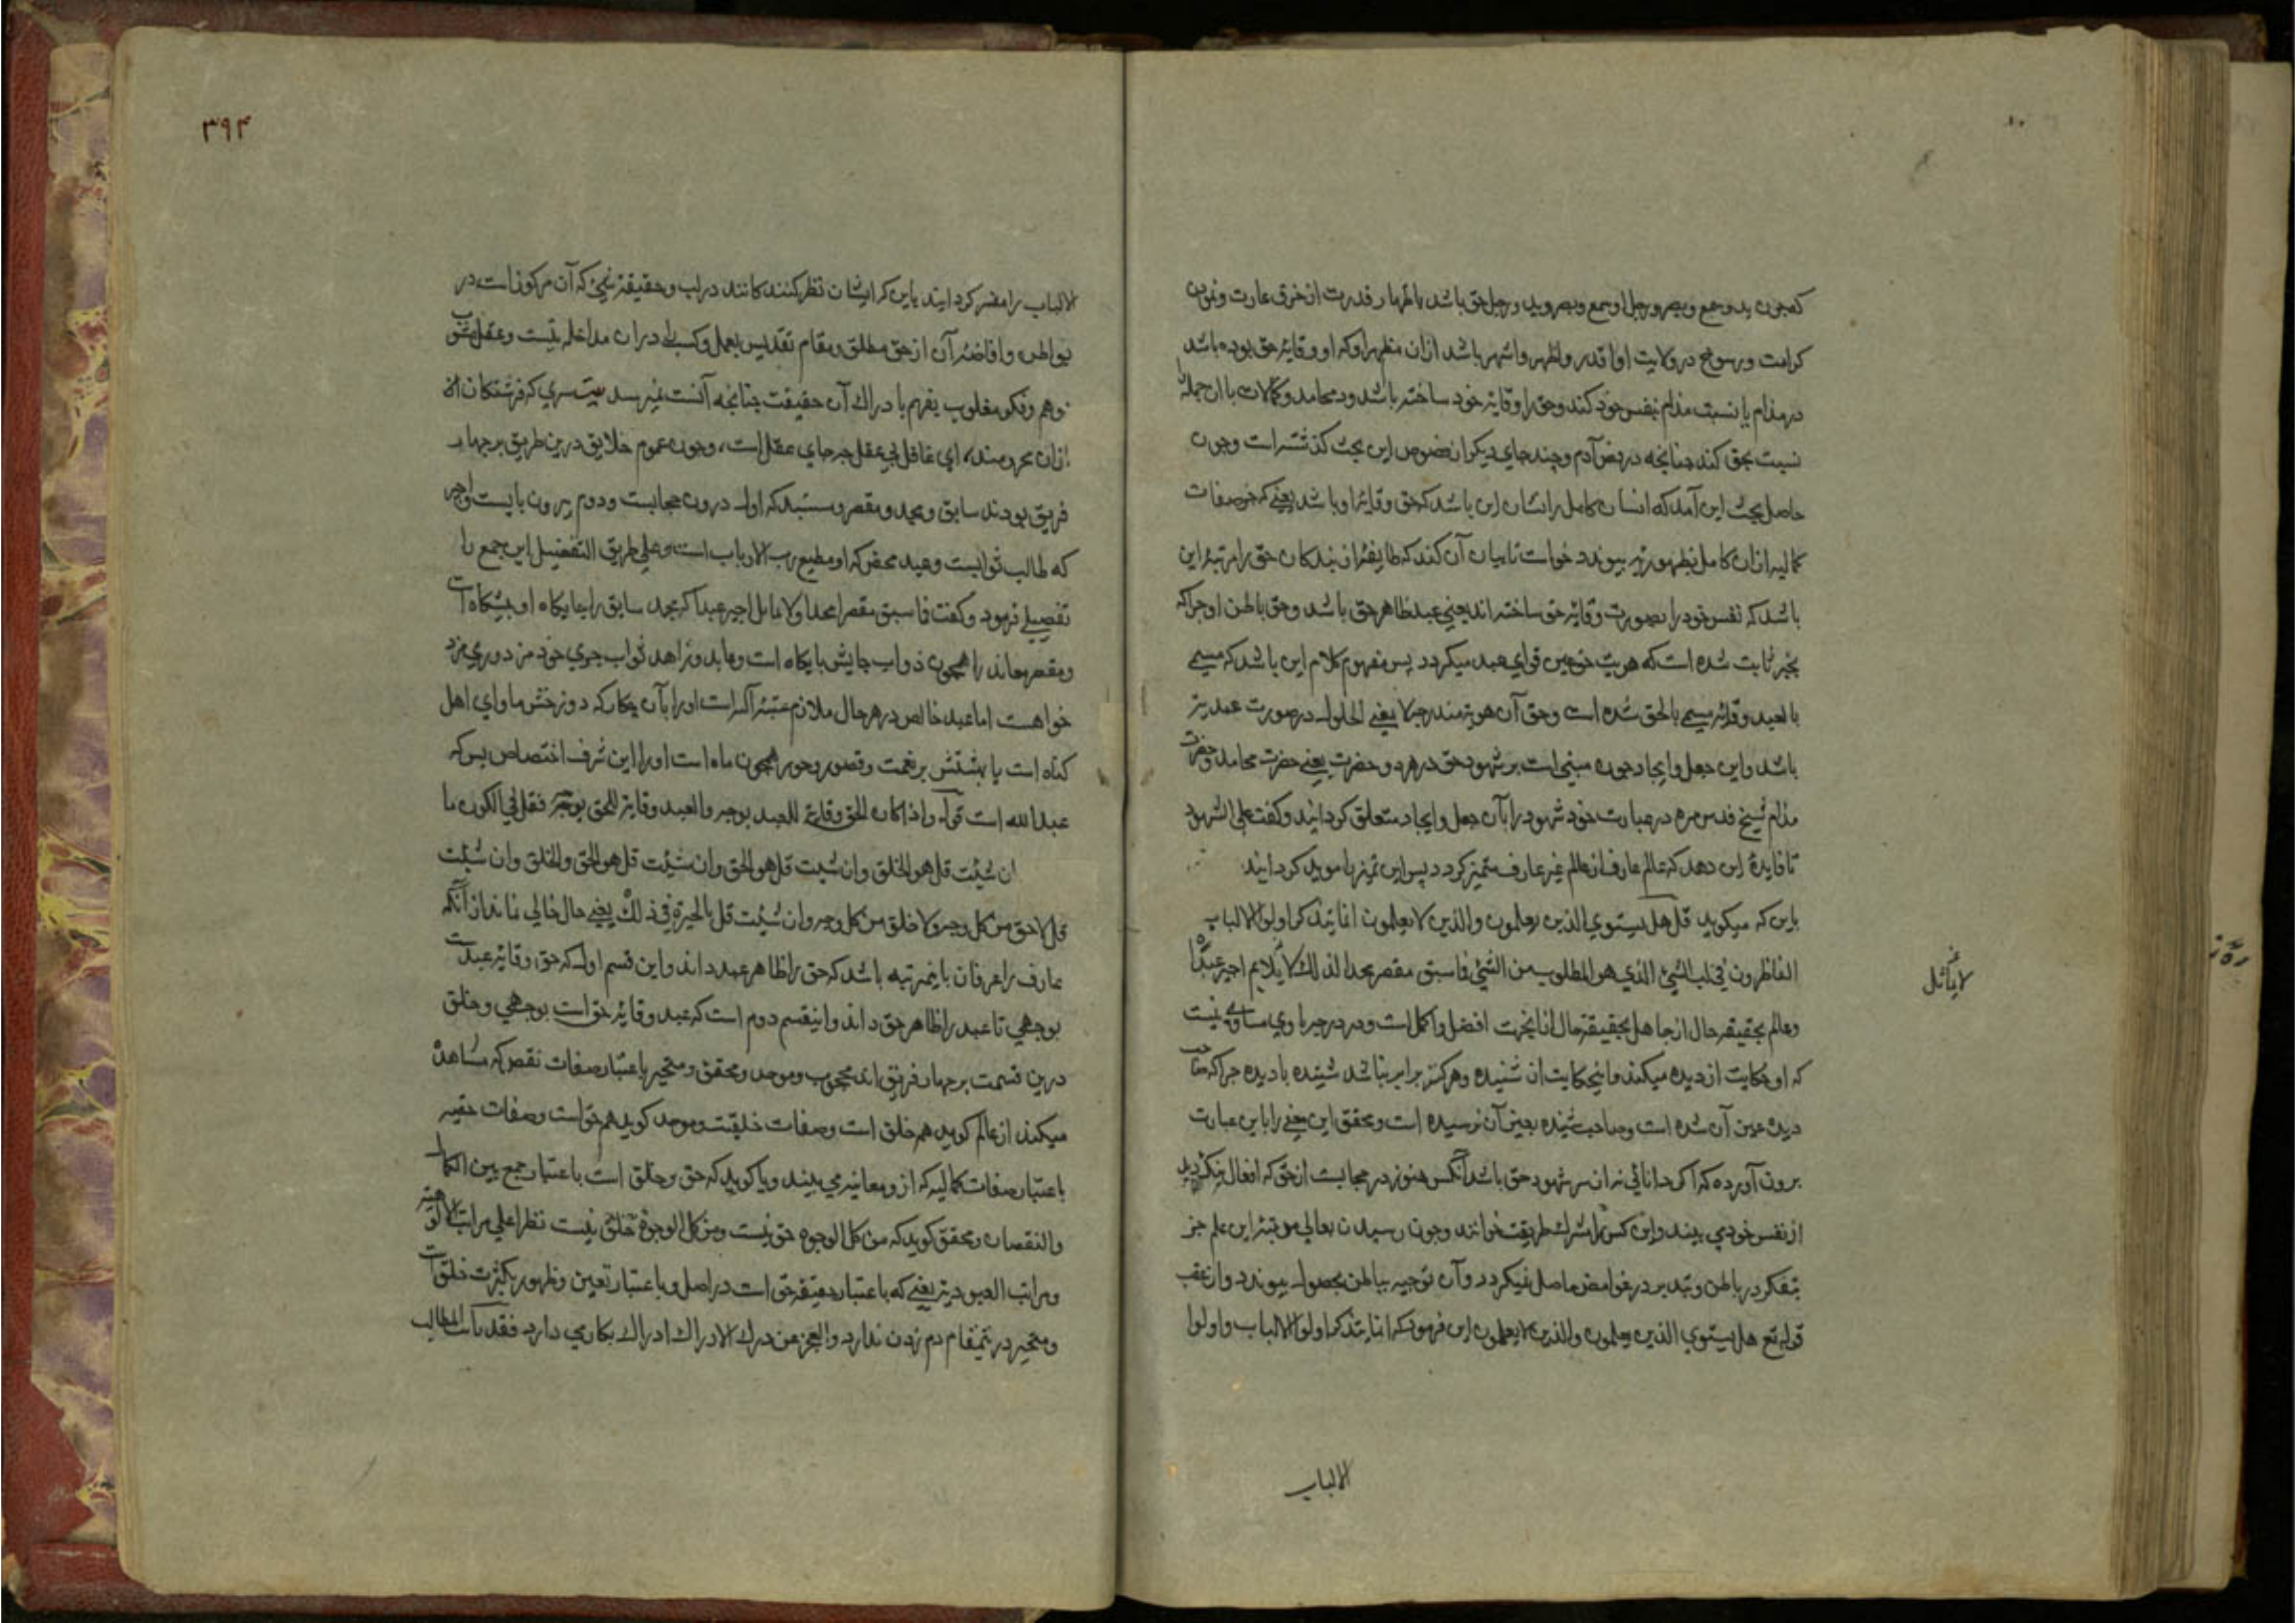 که چون ید و سمع و بصر و رجل او سمع و بصر و ید و رجل حق باشد باظهار قدرت از خرق عادت و نمودن
کرامت و رسوخ در ولایت او اقدر و اظهر و اشهر باشد ازان مظهر او که او وقایه حق بوده باشد
در مذام با نسبت مذام بنفس خود کند و حق را وقایه خود ساخته باشد و در محامد و کمالات با ان جمله را
نسبت بحق کند چنانچه در فص آدم و چند جای دیگر از فصوص این بحث کذشته است و چون
حاصل بحث این آمد که انسان کامل را نشان این باشد که حق وقایه او باشد یعنی که صفات
کمالیه ازان کامل بظهور پیوندد خواست تا بیان آن کند که طایفه از بندکان حق را مرتبه این
باشد که نفس خود را بصورت وقایه حق ساخته اند یعنی عبد ظاهر حق باشد و حق باطن او چرا که
بخبر ثابت شده است که هویت حق عین قوای عبد میکردد پس مفهوم کلام این باشد که مسمی
بالعبد وقایه مسمی بالحق شده است و حق آن هویة مندرجه لا یعنی الحلول در صورت عبدیة
باشد و این جعل و ایجاد چون مبنی است بر شهود حق در هر دو حضرت یعنی حضرت محامد و حضرت
مذام شیخ قدس سره در عبارت خود شهود را بآن جعل و ایجاد متعلق کردانید و کفت علی الشهود
تا فایده این دهد که عالم عارف از عالم غیر عارف متمیز کردد پس این تمیز را موید کردانید
باین که میکوید قل هل یستوی الذین یعلمون والذین لا یعلمون انما یتذکر اولوا الالباب
الناظرون فی لب الشیء الذی هو المطلوب من الشیء فما سبق مقصر مجدا کذلک لا یلایم اجیر عبدا
لا یماثل
و عالم بحقیقه حال از جاهل بحقیقه حال ازانجهت افضل و اکمل است و در درجه با وی مساوی نیست
که او حکایت از دیده میکند و اینحکایت از شنیده و هرکز برابر نباشد شنیده با دیده چرا که صاحب
دیده عین آن شده است و صاحب شنیده بعین آن نرسیده است و محقق این معنی را باین عبارت
برون آورده که اکر دانائی نه از سر شهود حق باشد آنکس هنوز در حجابست از حق که افعال نیک و بد
از نفس خود می بیند و این کس را مشرک طریقت خوانند و چون رسیدن بعالی مرتبه این علم جز
بتفکر در باطن و تدبر در غوامض حاصل نمیکردد و آن توجیه بباطن بحصول پیوندد و از عقب
قوله تع هل یستوی الذین یعلمون والذین لا یعلمون این فرمود که انما یتذکر اولوا الالباب و اولوا
الالباب
۳۹۴
الالباب را مفسر کردانید باین که ایشان نظر کنندکانند در لب و حقیقة شیء که آن مرکوز است در
بواطن و افاضه آن از حق مطلق و مقام تقدیس بعمل و کسب را دران مداخله نیست و عقل مشوب
بوهم و فکر مغلوب بفهم با دراک آن حقیقت چنانچه آنست نمیرسد بیت سری که فرشتکان
ازان محرومند، ای غافل بی عقل چه جای عقل است، و چون عموم خلایق درین طریق بر چهار
فریق بودند سابق و مجد و مقصر و که اول درون حجابست و دوم برون بابست و اجیر
که طالب ثوابست و عبد محض که او مطیع رب الارباب است و علی طریق التفصیل این جمع را
تفصیلی فرمود و کفت فما سبق مقصر مجدا و لا ماثل اجیر عبدا که مجد سابق را جایکاه او پیشکاه است
و مقصر مهاند را همچون دواب جایش پایکاه است و عابد و زاهد ثواب جوی خود مزدوری مزد
خواهست اما عبد خالص در هر حال ملازم عتبه آله است او را با آن چکار که دوزخش ماوای اهل
کناه است یا بهشتش پر نعمت و قصور و حور همچون ماه است او را این شرف اختصاص بس که
عبد الله است قوله و اذا کان الحق وقایة للعبد بوجه و العبد وقایة للحق بوجه فقل فی الکون ما
ان شئت قل هو الخلق و ان شئت قل هو الحق و ان شئت قل هو الحق و الخلق و ان شئت
قل لا حق من کل وجه و لا خلق من کل وجه و ان شئت قل بالحیرة فی ذلک یعنی حال خالی نماند از آنکه
عارف را عرفان باینمرتبه باشد که حق را ظاهر عبد داند و این قسم اول که حق وقایه عبدست
بوجهی تا عبد را ظاهر حق داند و اینقسم دوم است که عبد وقایه حق است بوجهی و خلق
درین قسمت بر چهار فریق اند محجوب و موحد و محقق و متحیر باعتبار صفات نقص که مشاهده
میکند از عالم کوید هم خلق است و صفات خلقیت و موحد کوید هم حق است و صفات حقیه
باعتبار صفات کمالیه که از و معاینه می بیند و یا کوید که حق و خلق است باعتبار جمع بین الکمال
و النقصان و محقق کوید که من کل الوجوه حق نیست و من کل الوجوه خلق نیست نظرا علی مراتب الالوهیة
و مراتب العبودیة یعنی که باعتبار حقیقه حق است در اصل و باعتبار تعین و ظهور بکثرت خلق است
و متحیر درینمقام دم زدن ندارد و العجز عن درک الادراک ادراک بکار می دارد فقد بانت المطالب